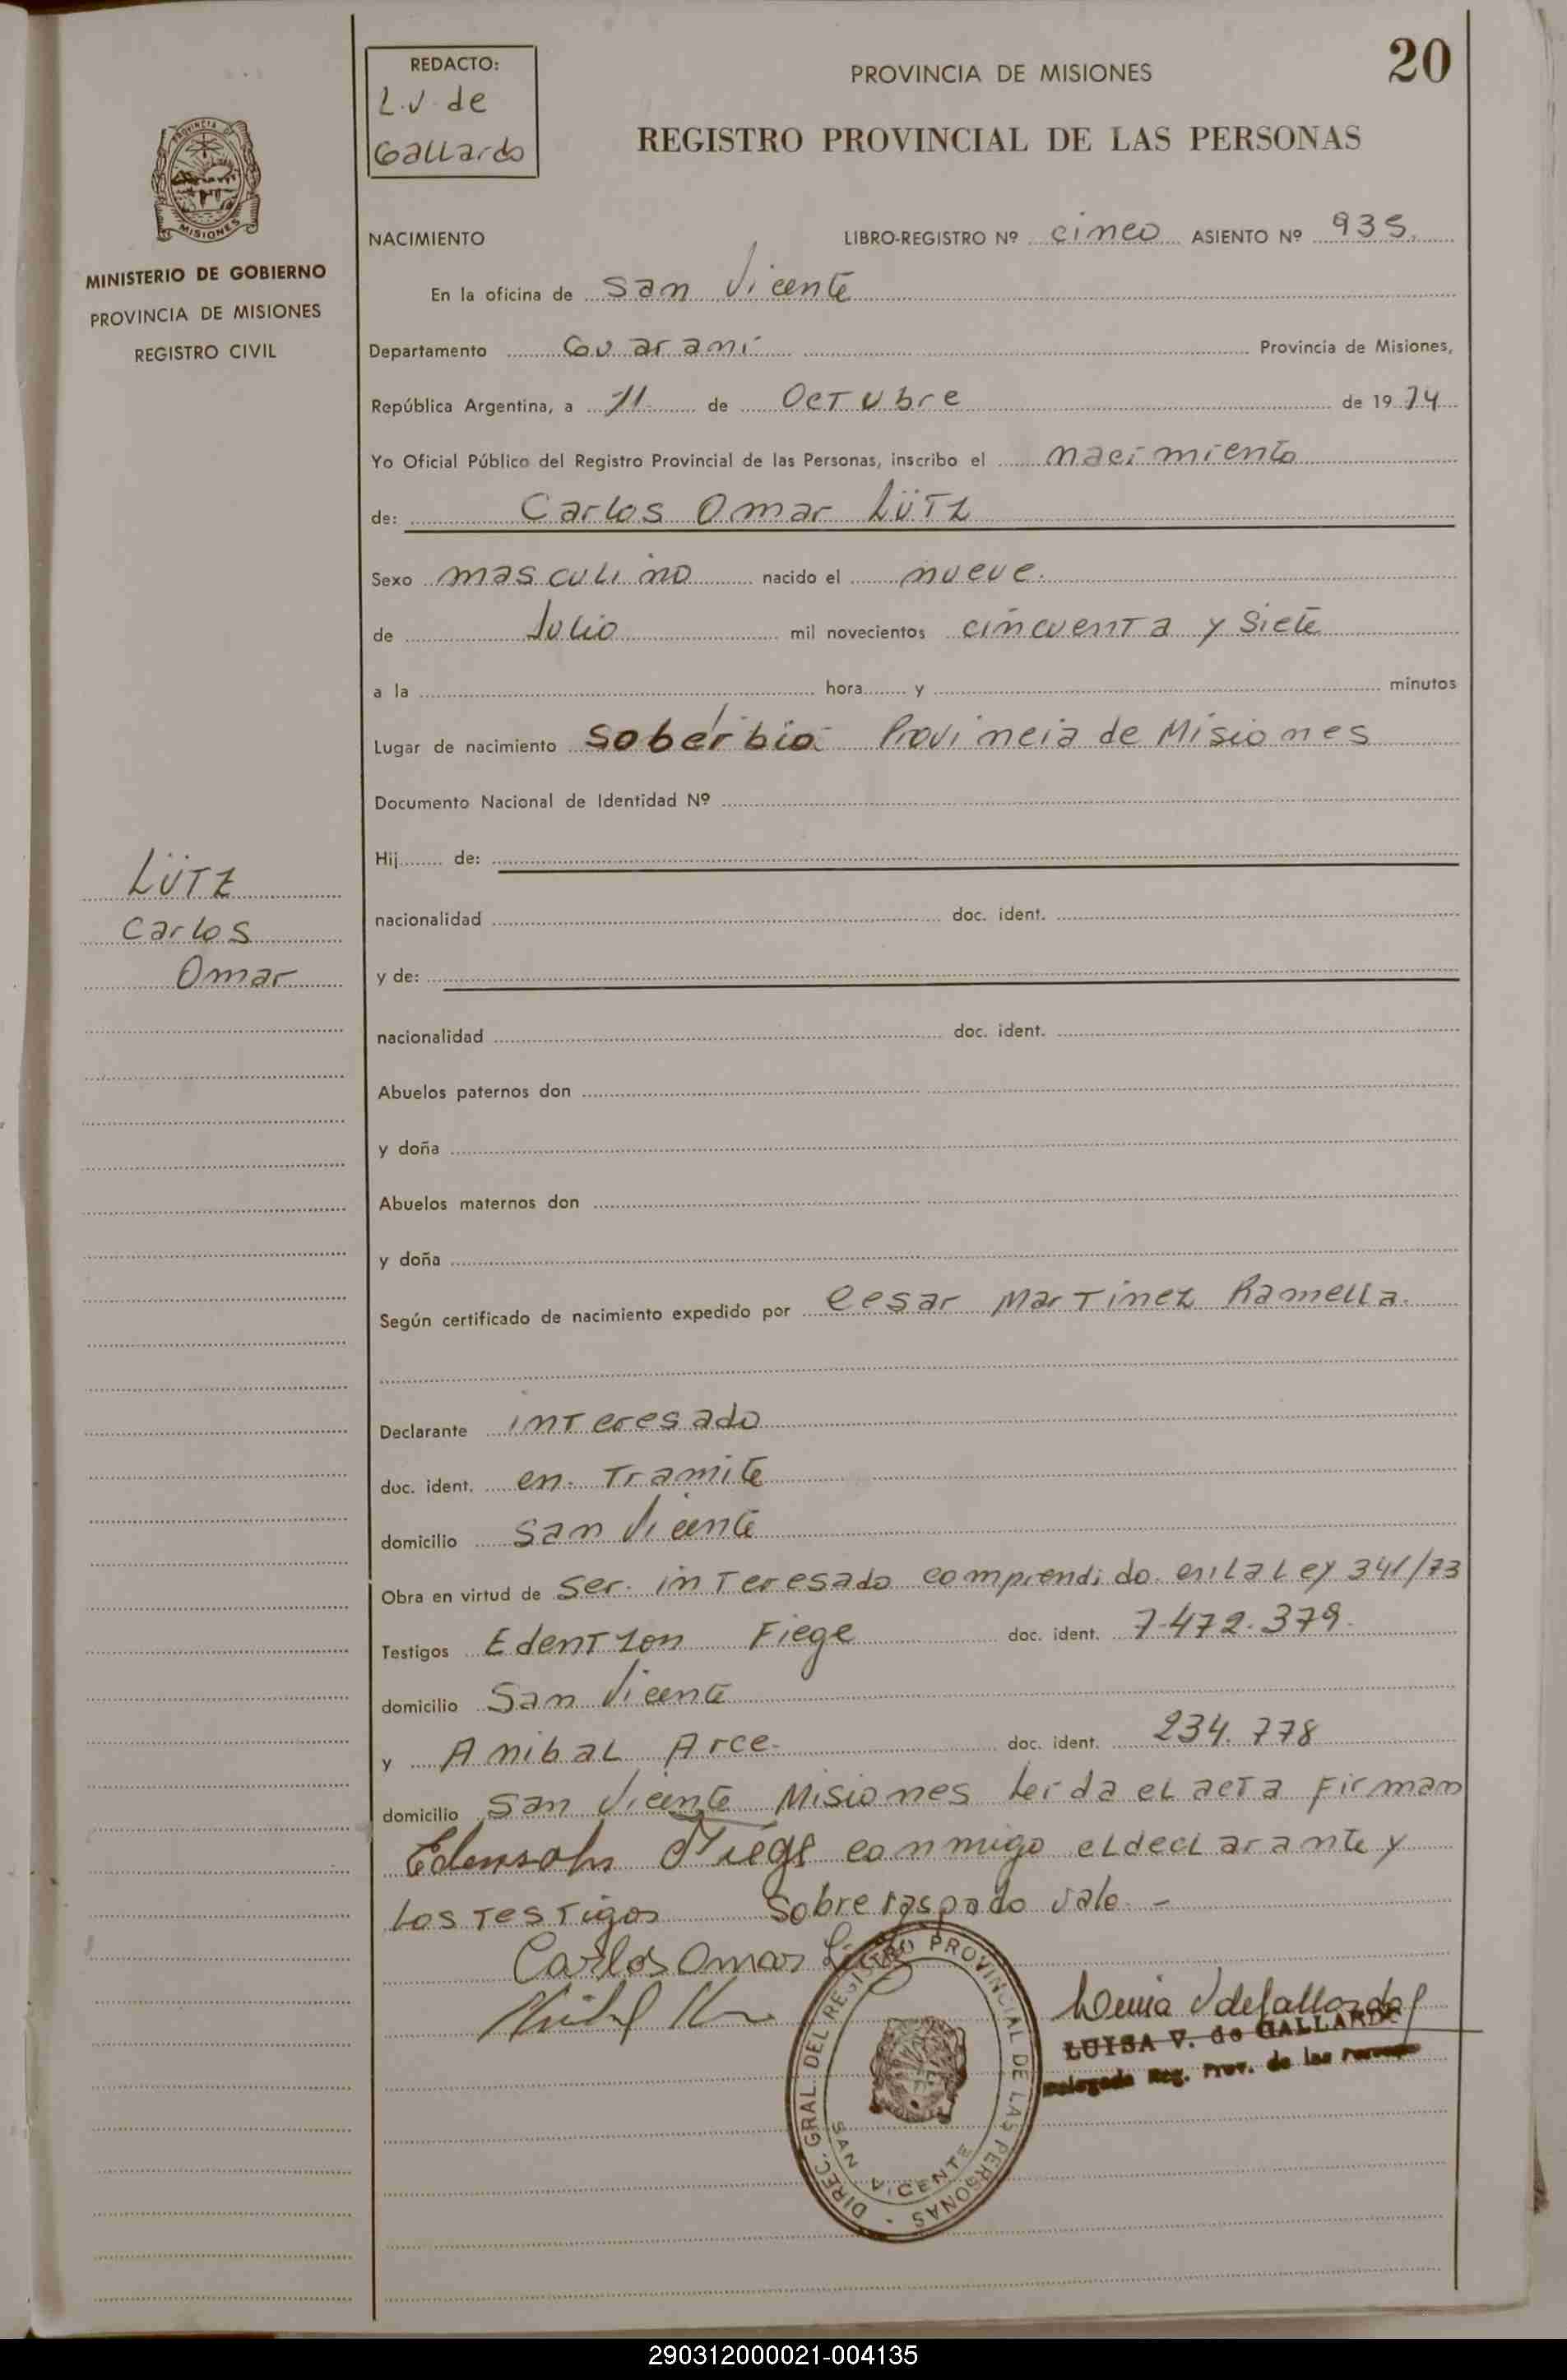 20
REDACTO:
L.V. de
Gallardo
PROVINCIA DE MISIONES
REGISTRO PROVINCIAL DE LAS PERSONAS
PROVINCIA DE
MISIONES
MINISTERIO DE GOBIERNO
PROVINCIA DE MISIONES
REGISTRO CIVIL
NACIMIENTO LIBRO-REGISTRO Nº cinco ASIENTO Nº 935.
En la oficina de San Vicente
Departamento Guaraní Provincia de Misiones,
República Argentina, a 11 de Octubre de 1974
Yo Oficial Público del Registro Provincial de las Personas, inscribo el nacimiento
de: Carlos Omar LÜTZ
Sexo masculino nacido el nueve.
de Julio mil novecientos cincuenta y siete
a la hora y minutos
Lugar de nacimiento Soberbio Provincia de Misiones
Documento Nacional de Identidad Nº
Hij de:
LÜTZ
Carlos
Omar
nacionalidad doc. ident.
y de:
nacionalidad doc. ident.
Abuelos paternos don
y doña
Abuelos maternos don
y doña
Según certificado de nacimiento expedido por Cesar Martinez Ramella.
Declarante interesado
doc. ident. en tramite
domicilio San Vicente
Obra en virtud de ser interesado comprendido en la Ley 341/73
Testigos Edentzon Fiege doc. ident. 7.472.379.
domicilio San Vicente
y Anibal Arce doc. ident. 234.778
domicilio San Vicente Misiones leida el acta firman
Edensohn Fiege conmigo el declarante y
los testigos Sobre raspado vale. -
Carlos Omar
LUISA V. de GALLARDO
Delegada Reg. Prov. de las Personas
DIREC. GRAL. DEL REGISTRO PROVINCIAL DE LAS PERSONAS -
SAN VICENTE
290312000021-004135